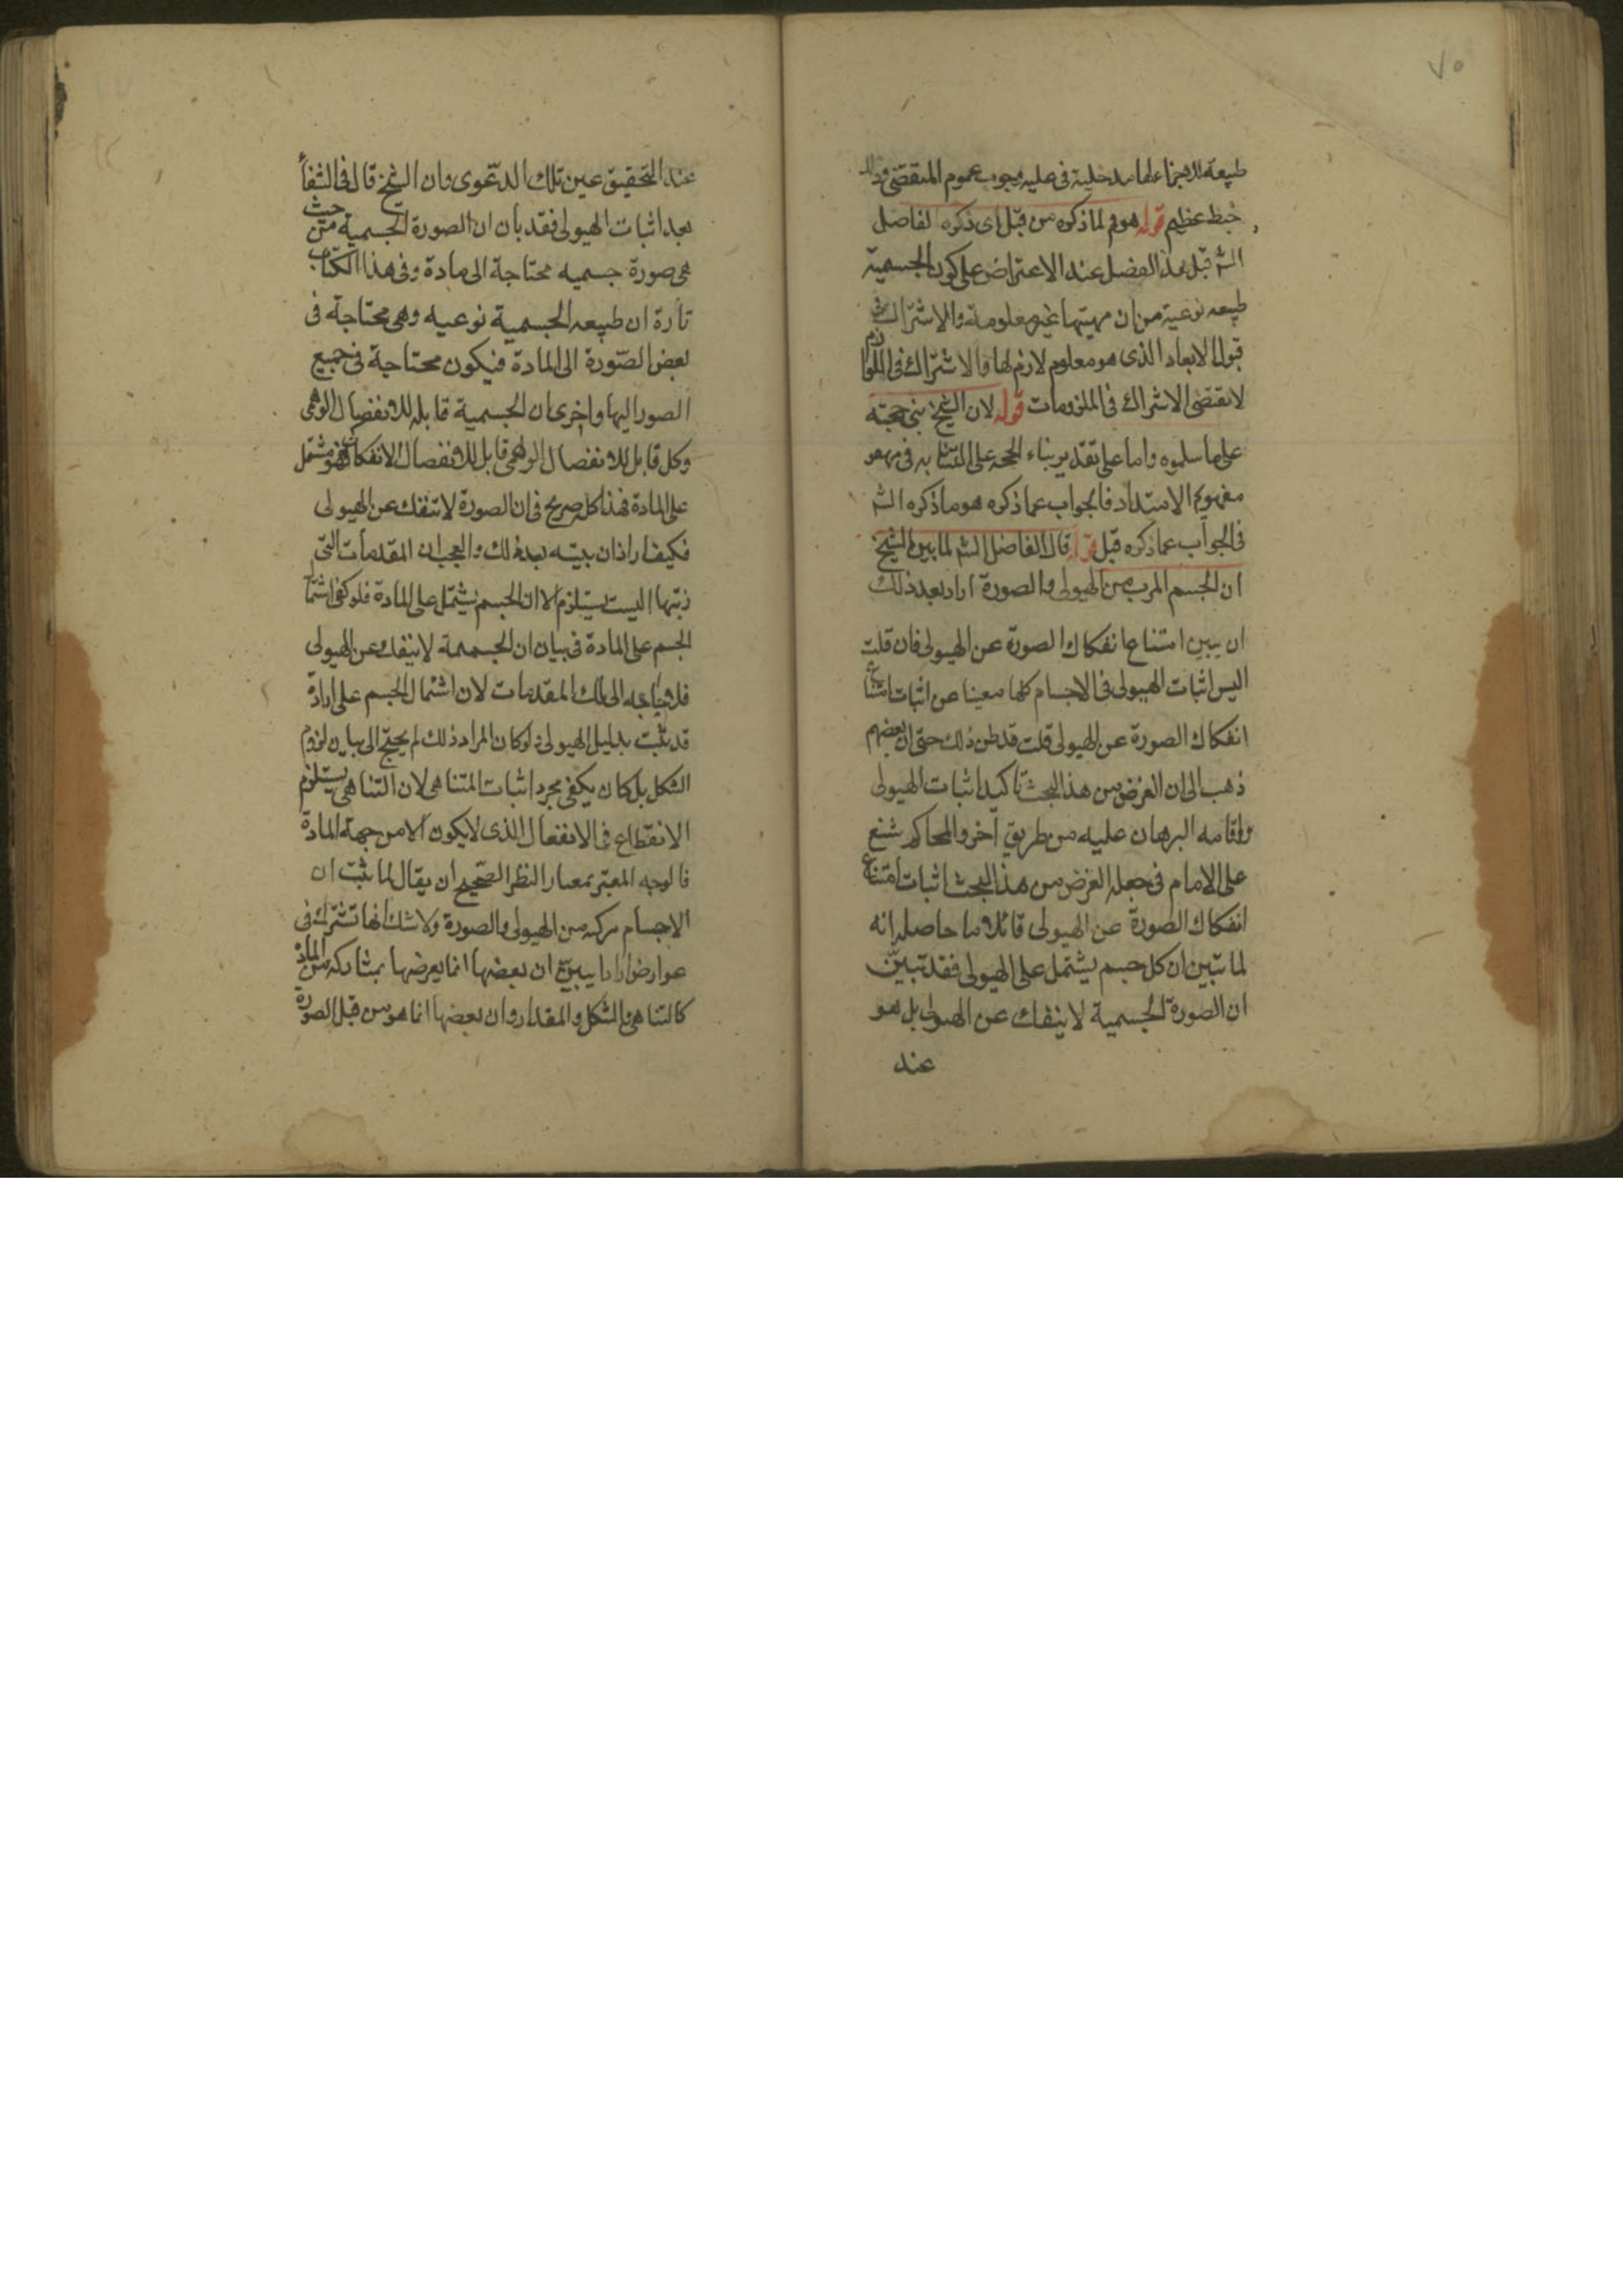 ٧٥
طبيعة الاجزاء لها مدخلية فى عليه وجوب عموم المنقضى
خبط عظيم قوله هو لما ذكره من قبل اى ذكره الفاضل
الشـ قبل هذا الفصل عند الاعتراض على كون الجسمية
طبيعه نوعية من ان مهيتها غير معلومة والاشتراك فى
قبول الابعاد الذى هو معلوم لازم لها فالاشتراك فى اللوازم
لا يقتضى الاشتراك فى الملزومات قوله لان الشيخ بنى حجته
على ما سلموه واما على تقدير بناء الحجه على
مفهوم الامتداد فالجواب عما ذكره هو ما ذكره الشـ
فى الجواب عما ذكره قبل قوله قال الفاضل الشـ لما بين الشيخ
ان الجسم المركب من الهيولى والصورة اراد بعد ذلك
ان يبين امتناع انفكاك الصورة عن الهيولى فان قلت
اليس اثبات الهيولى فى الاجسام كلها مغنيا عن اثبات امتناع
انفكاك الصورة عن الهيولى قلت قد ظن ذلك حتى ان بعضهم
ذهب الى ان الغرض من هذا البحث تاكيد اثبات الهيولى
واقامه البرهان عليه من طريق آخر والمحاكم شنع
على الامام فى جعله الغرض من هذا البحث اثبات امتناع
انفكاك الصورة عن الهيولى قائلا ما حاصله انه
لما تبين ان كل جسم يشتمل على الهيولى فقد تبين
ان الصورة الجسمية لا ينفك عن الهيولى بل هو
عند
عند التحقيق عين تلك الدعوى وان الشيخ قال فى الشفاء
بعد اثبات الهيولى فقد بان ان الصورة الجسمية من حيث
هى صورة جسميه محتاجة الى مادة وفى هذا الكتاب
تارة ان طبيعه الجسمية نوعيه وهى محتاجة فى
بعض الصورة الى المادة فيكون محتاجة فى جميع
الصور اليها واخرى ان الجسمية قابله للانفصال الوهمى
وكل قابل للانفصال الوهمى قابل للانفصال الانفكاكى فهو مشتمل
على المادة فهذا كله صريح فى ان الصورة لا تنفك عن الهيولى
فكيف اراد ان يبينه بعد ذلك والعجب ان المقدمات التى
رتبها اليست يستلزم الا ان الجسم يشتمل على المادة فلو كفى اشتمال
الجسم على المادة فى بيان ان الجسمية لا ينفك عن الهيولى
فلا حاجه الى تلك المقدمات لان اشتمال الجسم على
قد ثبت بدليل الهيولى ولو كان المراد ذلك لم يحتج الى بيان لزوم
الشكل بل كان يكفى مجرد اثبات المتناهى لان التناهى يستلزم
الانقطاع فالانفعال الذى لا يكون الا من جهة المادة
فالوجه المعتبر بمعيار النظر الصحيح ان يقال لما ثبت ان
الاجسام مركبه من الهيولى والصورة ولا شك انها تشترك فى
عوارض اراد ان يبين ان بعضها انما يعرضها بمشاركه من المادة
كالتناهى والشكل والمقدار وان بعضها انما هو من قبل الصورة